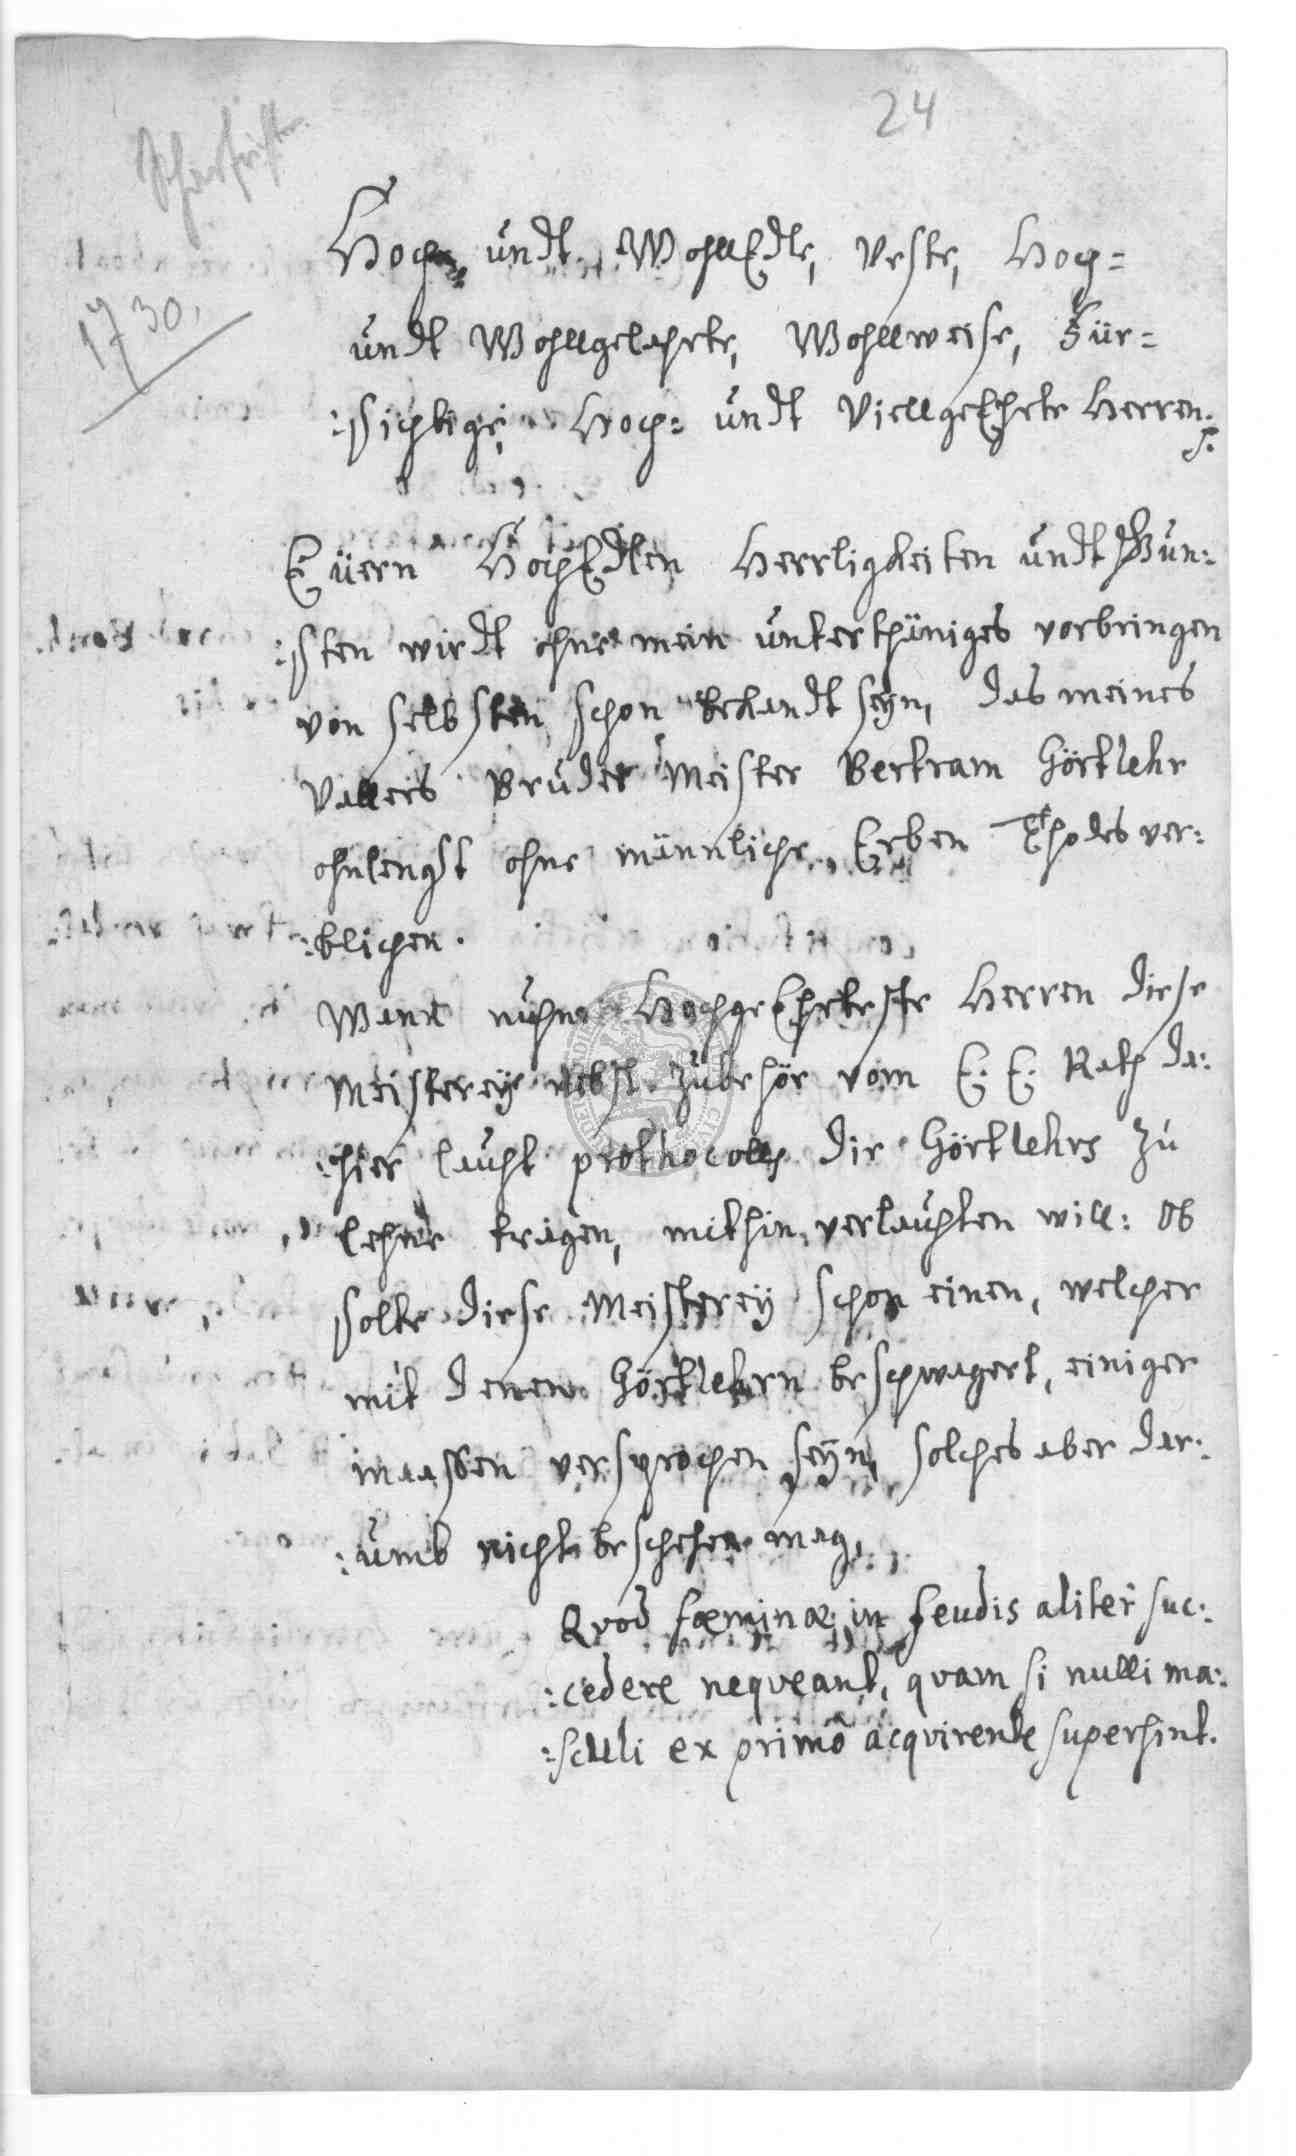 24
Scharfrichter
1730.
Hoch- undt WohllEdle, Veste, Hoch=
undt Wohllgelahrte, Wohllweise, Für=
:sichtige, Hoch: undt ViellgeEhrte Herren.
Eüern HochEdlen Herrligkeiten undt Gun:
:sten wirdt ohne mein unterthäniges vorbringen
von selbsten schon bekandt seyn, das meines
Vatters Bruder Meister Bertram Görtlehr
ohnlengst ohne männliche Erben Thodes ver:
:blichen.
Wann nuhn HochgeEhrteste Herren diese
Meisterey nebst Zubehör vom E. E. Rath da:
:hier lauht prothocolls die Görtlehrs zu
lehne tragen, mithin verlauhten will: Ob
solte diese Meisterey schon einen, welcher
mit denen Görtlehrn beschwagert, einiger
maassen versprochen seyn, solches aber dar:
:umb nicht beschehen mag,
Qvod fœminæ in feudis aliter suc:
:cedere neqveant, qvam si nulli ma:
:sculi ex primo acqvirente supersint.